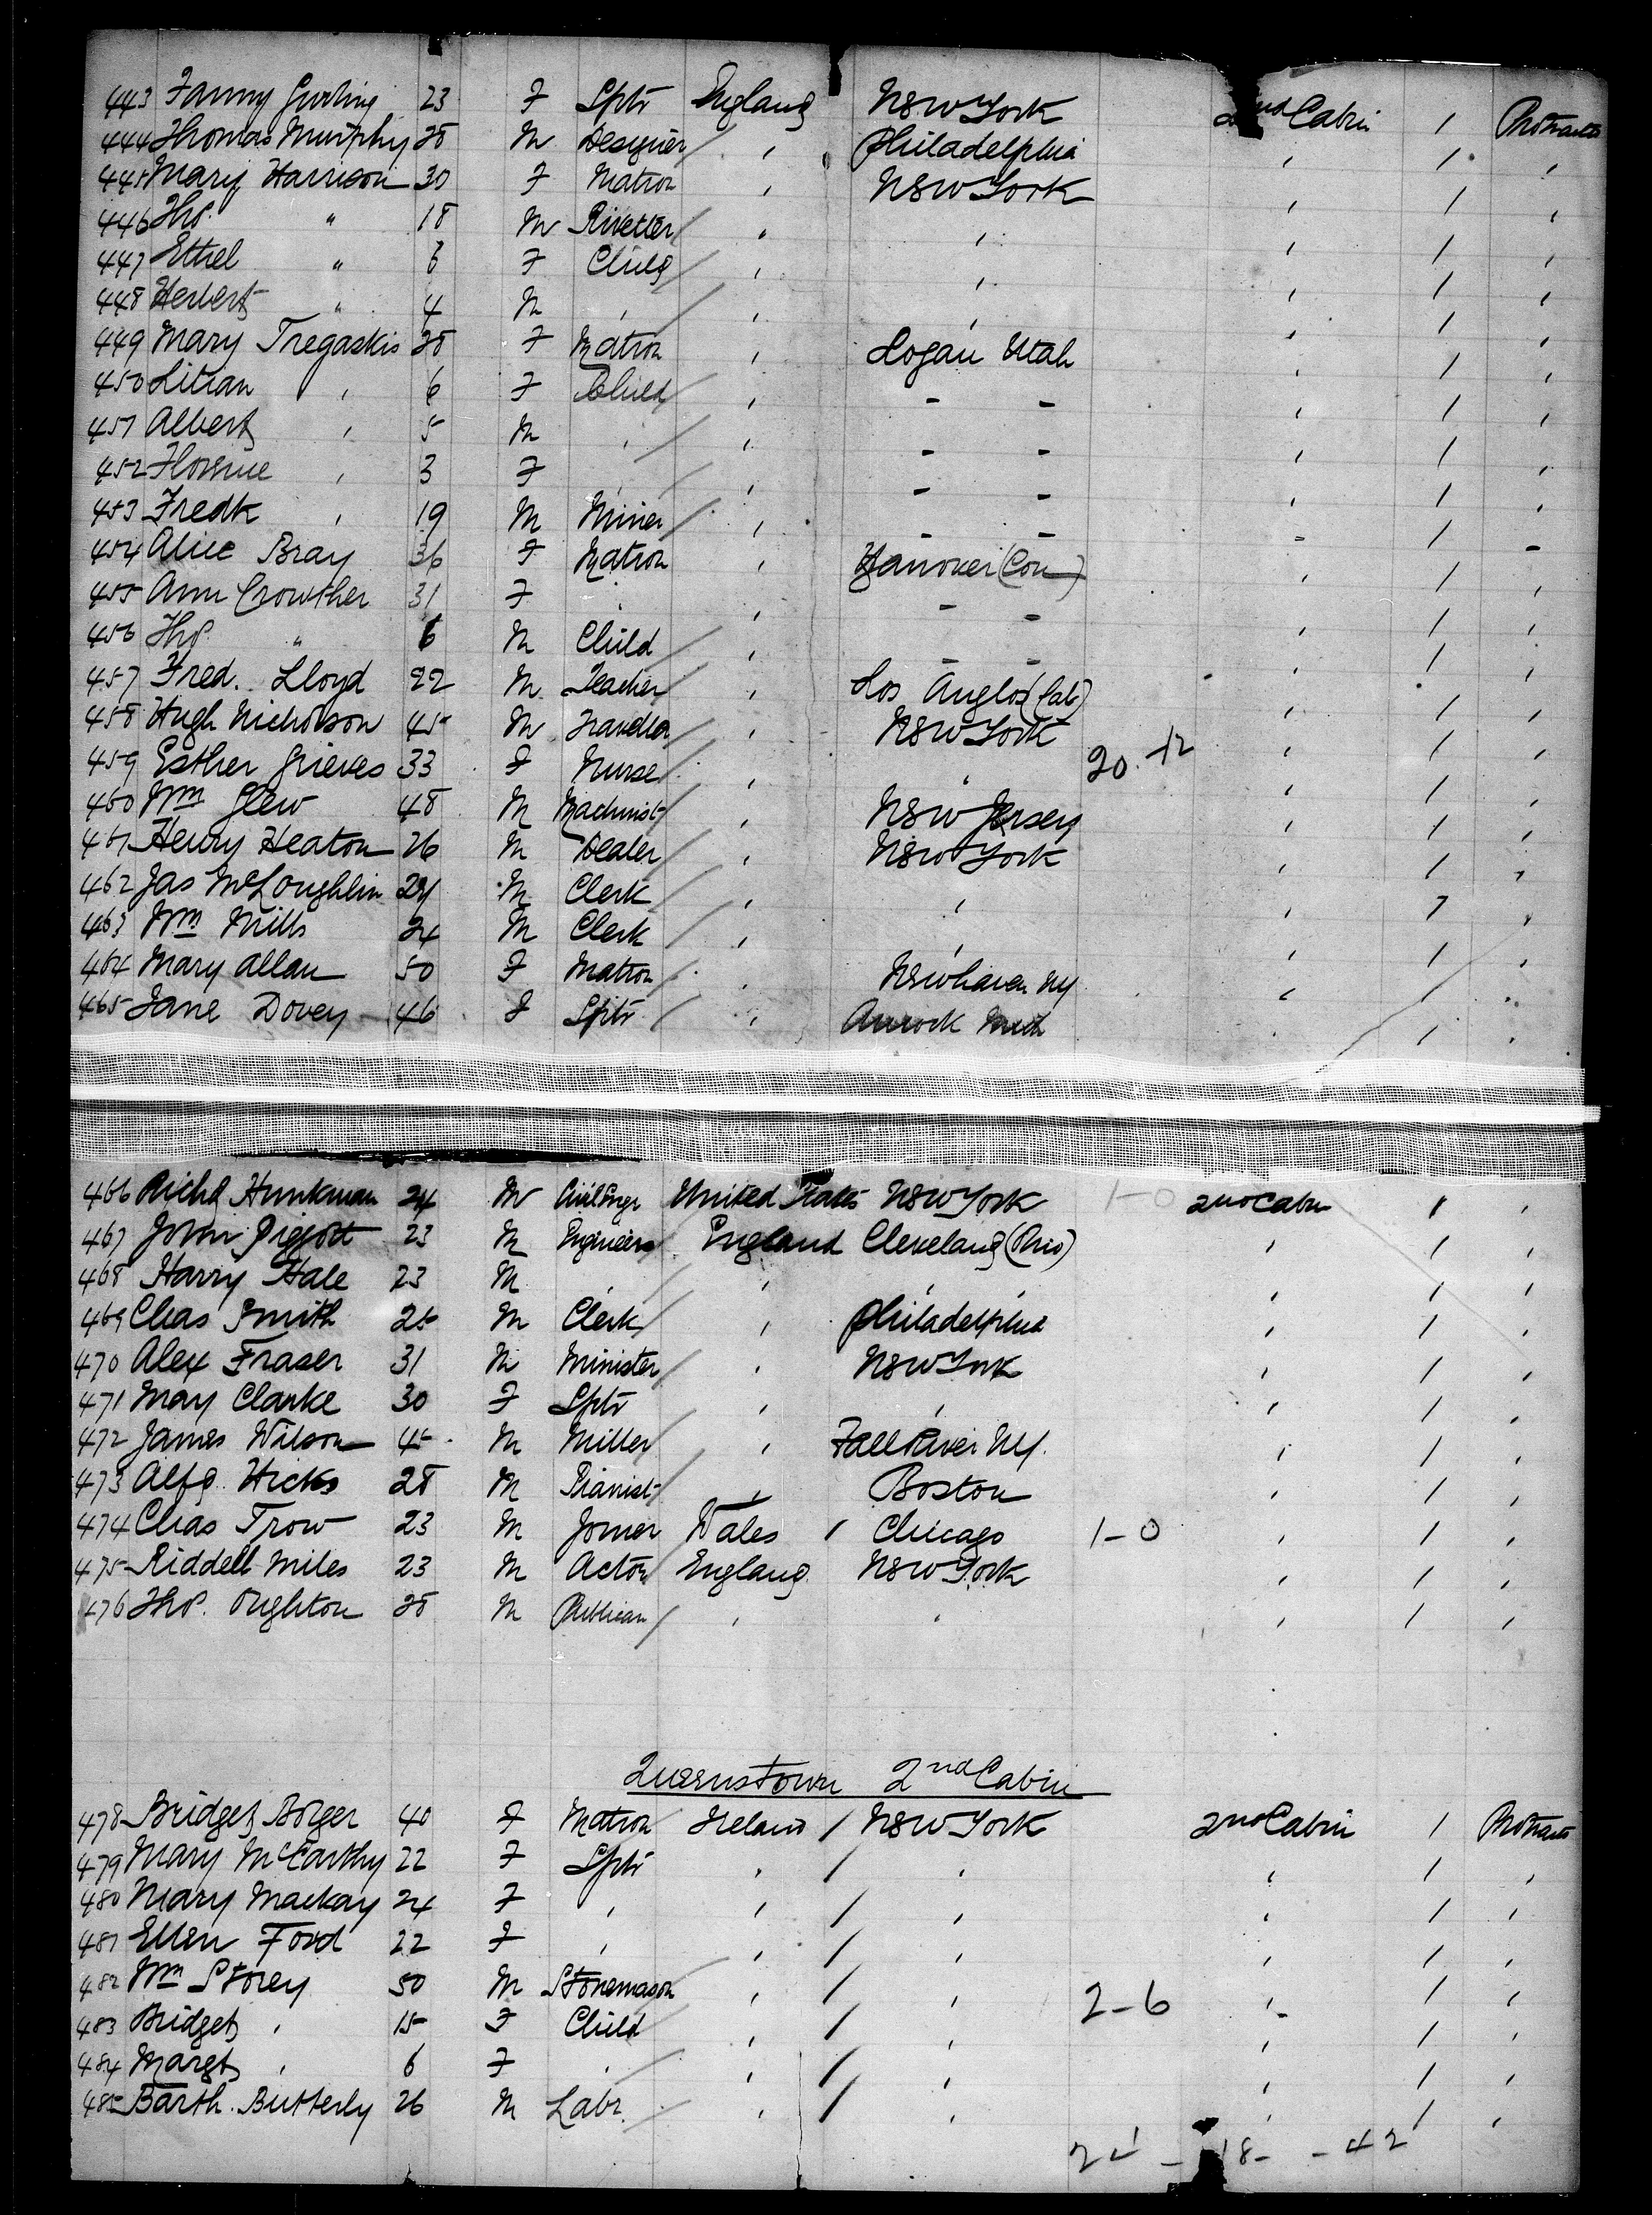 443 Fanny Gurling 23 F Sptr England New York 2nd Cabin / Protracted
444 Thomas Murphy 28 M Designer / , Philadelphia , / ,
445 Mary Harrison 30 F Matron , New York , / ,
446 Thos. " 18 M Rivetter / , , , / ,
447 Ethel " 8 F Child / , , , / ,
448 Herbert " 4 M , / , , , / ,
449 Mary Tregaskis 38 F Matron , Logan Utah , / ,
450 Lilian , 6 F Child / , - - , / ,
451 Albert , 5 M , / , - - , / ,
452 Florence , 3 F , / , - - , / ,
453 Fredk , 19 M Miner / , - - - / -
454 Alice Bray 36 F Matron , Hanover (Con) , / ,
455 Ann Crowther 31 F , , - - , / ,
456 Thos. " 6 M Child / , - - , / ,
457 Fred. Lloyd 22 M Teacher / , Los Anglos (Cal) , / ,
458 Hugh Nicholson 45 M Traveller , New York , / ,
459 Esther Grieves 33 F Nurse / , , 20 - 12 , / ,
460 Wm Glew 48 M Machinist / , New Jersey , / ,
461 Henry Heaton 26 M Dealer / , New York , / ,
462 Jas McLoughlin 24 M Clerk / , , , / ,
463 Wm Mills 24 M Clerk / , , , / ,
464 Mary Allan 50 F Matron / , Newhaven NY , / ,
465 Jane Dovey 46 F Sptr / , Mich , / ,
466 Richd Hunkman 24 M Civil Engr United States New York 1-0 2nd Cabin / ,
467 John Piggott 23 M Engineer / England Cleveland (Ohio) , / ,
468 Harry Hale 23 M , / , , , / ,
469 Chas Smith 25 M Clerk / , Philadelphia , / ,
470 Alex Fraser 31 M Minister / , New York , / ,
471 May Clarke 30 F Sptr , , , / ,
472 James Wilson 45 M Miller / , Fall River NY. , / ,
473 Alfd. Hicks 28 M Pianist / , Boston , / ,
474 Chas Trow 23 M Joiner Wales / Chicago 1-0 , / ,
475 Riddell Miles 23 M Actor / England New York , / ,
476 Thos. Oughton 38 M Publican / , , , / ,
Queenstown 2nd Cabin
478 Bridget Bolger 40 F Matron Ireland / New York 2nd Cabin / Protracted
479 Mary McCarthy 22 F Sptr , / , , / ,
480 Mary Mackay 24 F , , / , , / ,
481 Ellen Ford 22 F , , / , , / ,
482 Wm Storey 50 M Stonemason , / , 2-6 , / ,
483 Bridget , 15 F Child , / , , / ,
484 Margt , 6 F , / , / , , / ,
485 Barth. Butterly 26 M Labr. / , / , , / ,
24 - 18 - 42